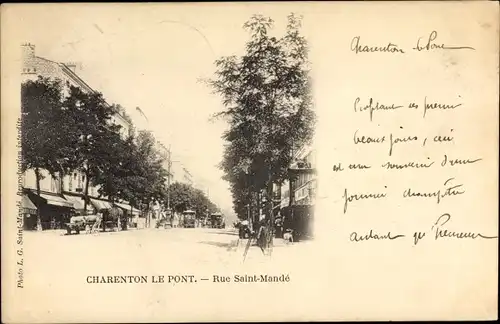 Charenton le Pont
Profitant des premiers
beaux jours, ceci
est un souvenir d'une
journée champêtre
autant que
CHARENTON LE PONT. — Rue Saint-Mandé
Photo L. G. Saint-Mandé. Reproduction interdite